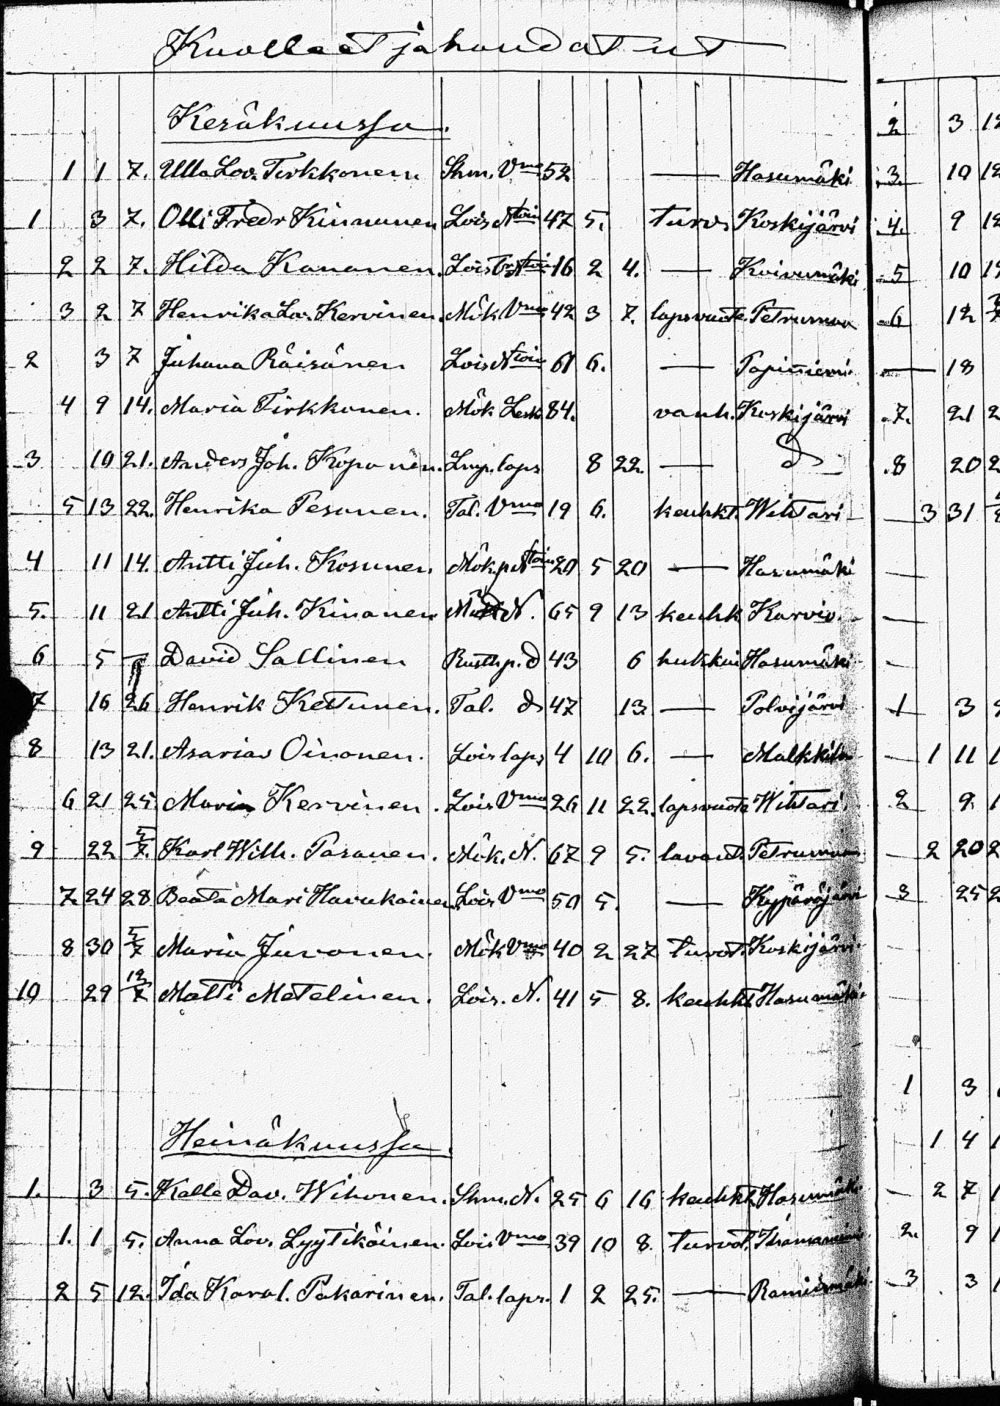 Kuolleet ja haudatut
Kesäkuussa.
1 1 7. Ulla Lov. Tirkkonen. Shm. Vmo 52 — Hasumäki
1 3 7. Olli Fredr Kinnunen Lois. Ntöin 47 5. turvo. Koskijärvi
2 2 7. Hilda Kananen. Lois 16 2 4. — Koivumäki
3 2 7 Henrika Lov. Kervinen. Mök Vmo 42 3 7. lapsvuote. Petrumaa
2 3 7 Juhana Räisänen Lois Ntöin 61 6. — Papiniemi
4 9 14. Maria Tirkkonen. Mök Lesk 84. vanh. Koskijärvi
3 10 21. Anders Joh. Koponen. Lmp. laps 8 22. — D
5 13 22. Henrika Pesonen. Tal. Vmo 19 6. keuhkt. Wihtari
4 11 14. Antti Juh. Kosunen. Mökp. Ntöin 20 5 20 — Hasumäki
5. 11 21 Antti Juh. Kinanen N. 65 9 13 keuhk Karvio.
6 5 David Sallinen Rusth p. d 43 6 hukkui Hasumäki
7 16 26 Henrik Kettunen. Tal. d 47 13. — Polvijärvi
8 13 21. Asarias Oinonen. Lois laps 4 10 6. —
6 21 25. Maria Kervinen. Lois Vmo 26 11 22. lapsvuote Wihtari.
9 22 5/7. Karl Wilh. Pasanen. Mök. N. 67 9 5. lavant. Petrumaa
7 24 28. Beata Mari Havukainen. Lois Vmo 50 5. — Kypäräjärvi
8 30 5/7 Maria Juvonen. Mök Vmo 40 2 27 turvot. Koskijärvi.
10 29 12/7 Matti Metelinen. Lois. N. 41 5 8. keuhkt. Hasumäki.
Heinäkuussa.
1. 3 5. Kalle Dav. Wihonen. Shm. N. 25 6 16 keuhkt. Hasumäki.
1. 1 5. Anna Lov. Lyytikäinen. Lois Vmo 39 10 8. turvot.
2 5 12. Ida Karol. Pakarinen. Tal. laps. 1 2 25. —
2 3
3. 10
4. 9
5 10
6 12
— 18
7. 21
8 20
3 31
1 3
1 11
2 9.
2 20
3 25
1 3
1 4
2 7
2. 9
3 3